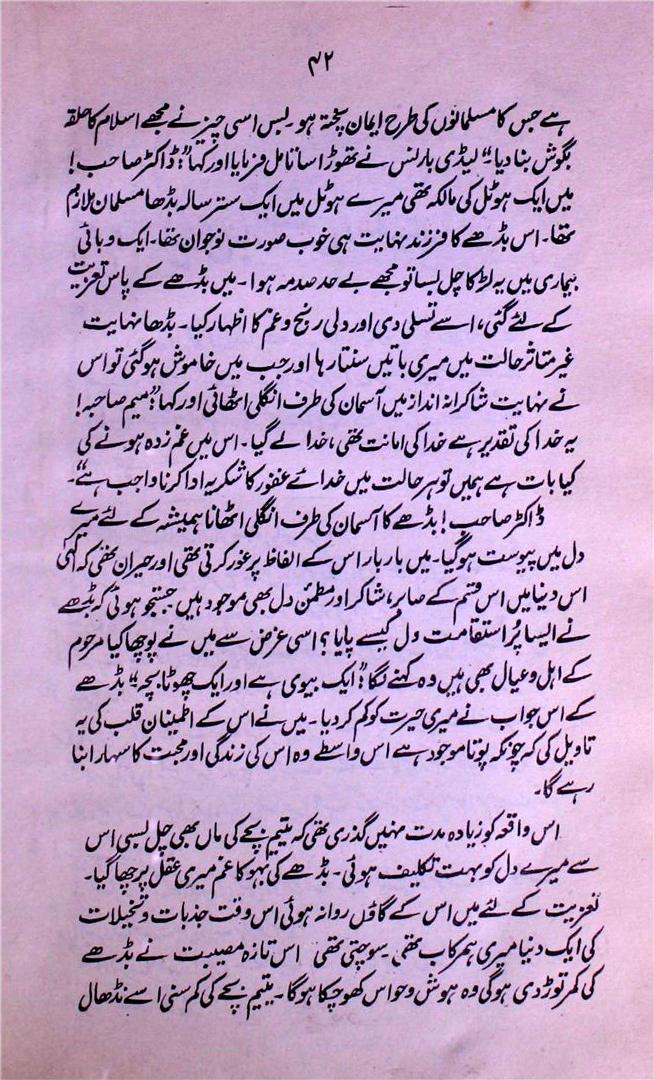 ۴۲
ہے جس کا مسلمانوں کی طرح ایمان پختہ ہو۔ بس اسی چیز نے مجھے اسلام کا حلقہ
بگوش بنا دیا۔" لیڈی بارنس نے تھوڑا سا تامل فرمایا اور کہا "ڈاکٹر صاحب!
میں ایک ہوٹل کی مالکہ تھی میرے ہوٹل میں ایک ستر سالہ بڈھا مسلمان ملازم
تھا۔ اس بڈھے کا فرزند نہایت ہی خوب صورت نوجوان تھا۔ ایک وبائی
بیماری میں یہ لڑکا چل بسا تو مجھے بے حد صدمہ ہوا۔ میں بڈھے کے پاس تعزیت
کے لئے گئی، اسے تسلی دی اور دلی رنج و غم کا اظہار کیا۔ بڈھا نہایت
غیر متاثر حالت میں میری باتیں سنتا رہا اور جب میں خاموش ہو گئی تو اس
نے نہایت شاکرانہ انداز میں آسمان کی طرف انگلی اٹھائی اور کہا "میم صاحبہ!
یہ خدا کی تقدیر ہے خدا کی امانت تھی، خدا لے گیا۔ اس میں غم زدہ ہونے کی
کیا بات ہے ہمیں تو ہر حالت میں خدائے غفور کا شکریہ ادا کرنا واجب ہے"۔
ڈاکٹر صاحب! بڈھے کا آسمان کی طرف انگلی اٹھانا ہمیشہ کے لئے میرے
دل میں پیوست ہو گیا۔ میں بار بار اس کے الفاظ پر غور کرتی تھی اور حیران تھی کہ الٰہی
اس دنیا میں اس قسم کے صابر، شاکر اور مطمئن دل بھی موجود ہیں جستجو ہوئی کہ بڈھے
نے ایسا پُر استقامت دل کیسے پایا؟ اسی غرض سے میں نے پوچھا کیا مرحوم
کے اہل و عیال بھی ہیں وہ کہنے لگا "ایک بیوی ہے اور ایک چھوٹا بچہ" بڈھے
کے اس جواب نے میری حیرت کو کم کر دیا۔ میں نے اس کے اطمینان قلب کی یہ
تاویل کی کہ چونکہ پوتا موجود ہے اس واسطے وہ اس کی زندگی اور محبت کا سہارا بنا
رہے گا۔
اس واقعہ کو زیادہ مدت نہیں گذری تھی کہ یتیم بچے کی ماں بھی چل بسی اس
سے میرے دل کو بہت تکلیف ہوئی۔ بڈھے کی بہو کا غم میری عقل پر چھا گیا۔
تعزیت کے لئے میں اس کے گاؤں روانہ ہوئی اس وقت جذبات و تخیلات
کی ایک دنیا میری ہمرکاب تھی۔ سوچتی تھی اس تازہ مصیبت نے بڈھے
کی کمر توڑ دی ہو گی وہ ہوش و حواس کھو چکا ہو گا۔ یتیم بچے کی کم سنی اسے نڈھال